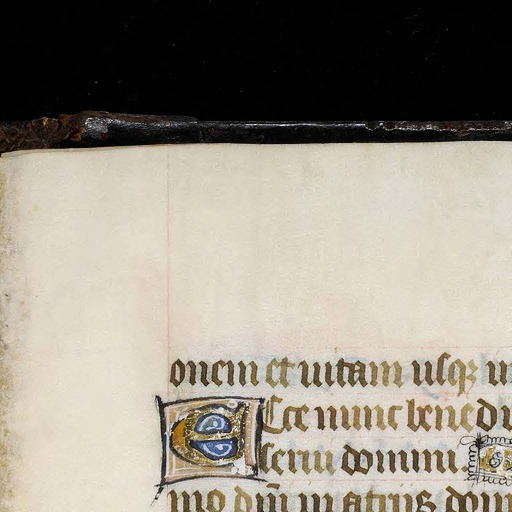 onem et uitam usqꝫ
Ecce nunc benedi
serui domini.
mo dn̄i in atriis dom